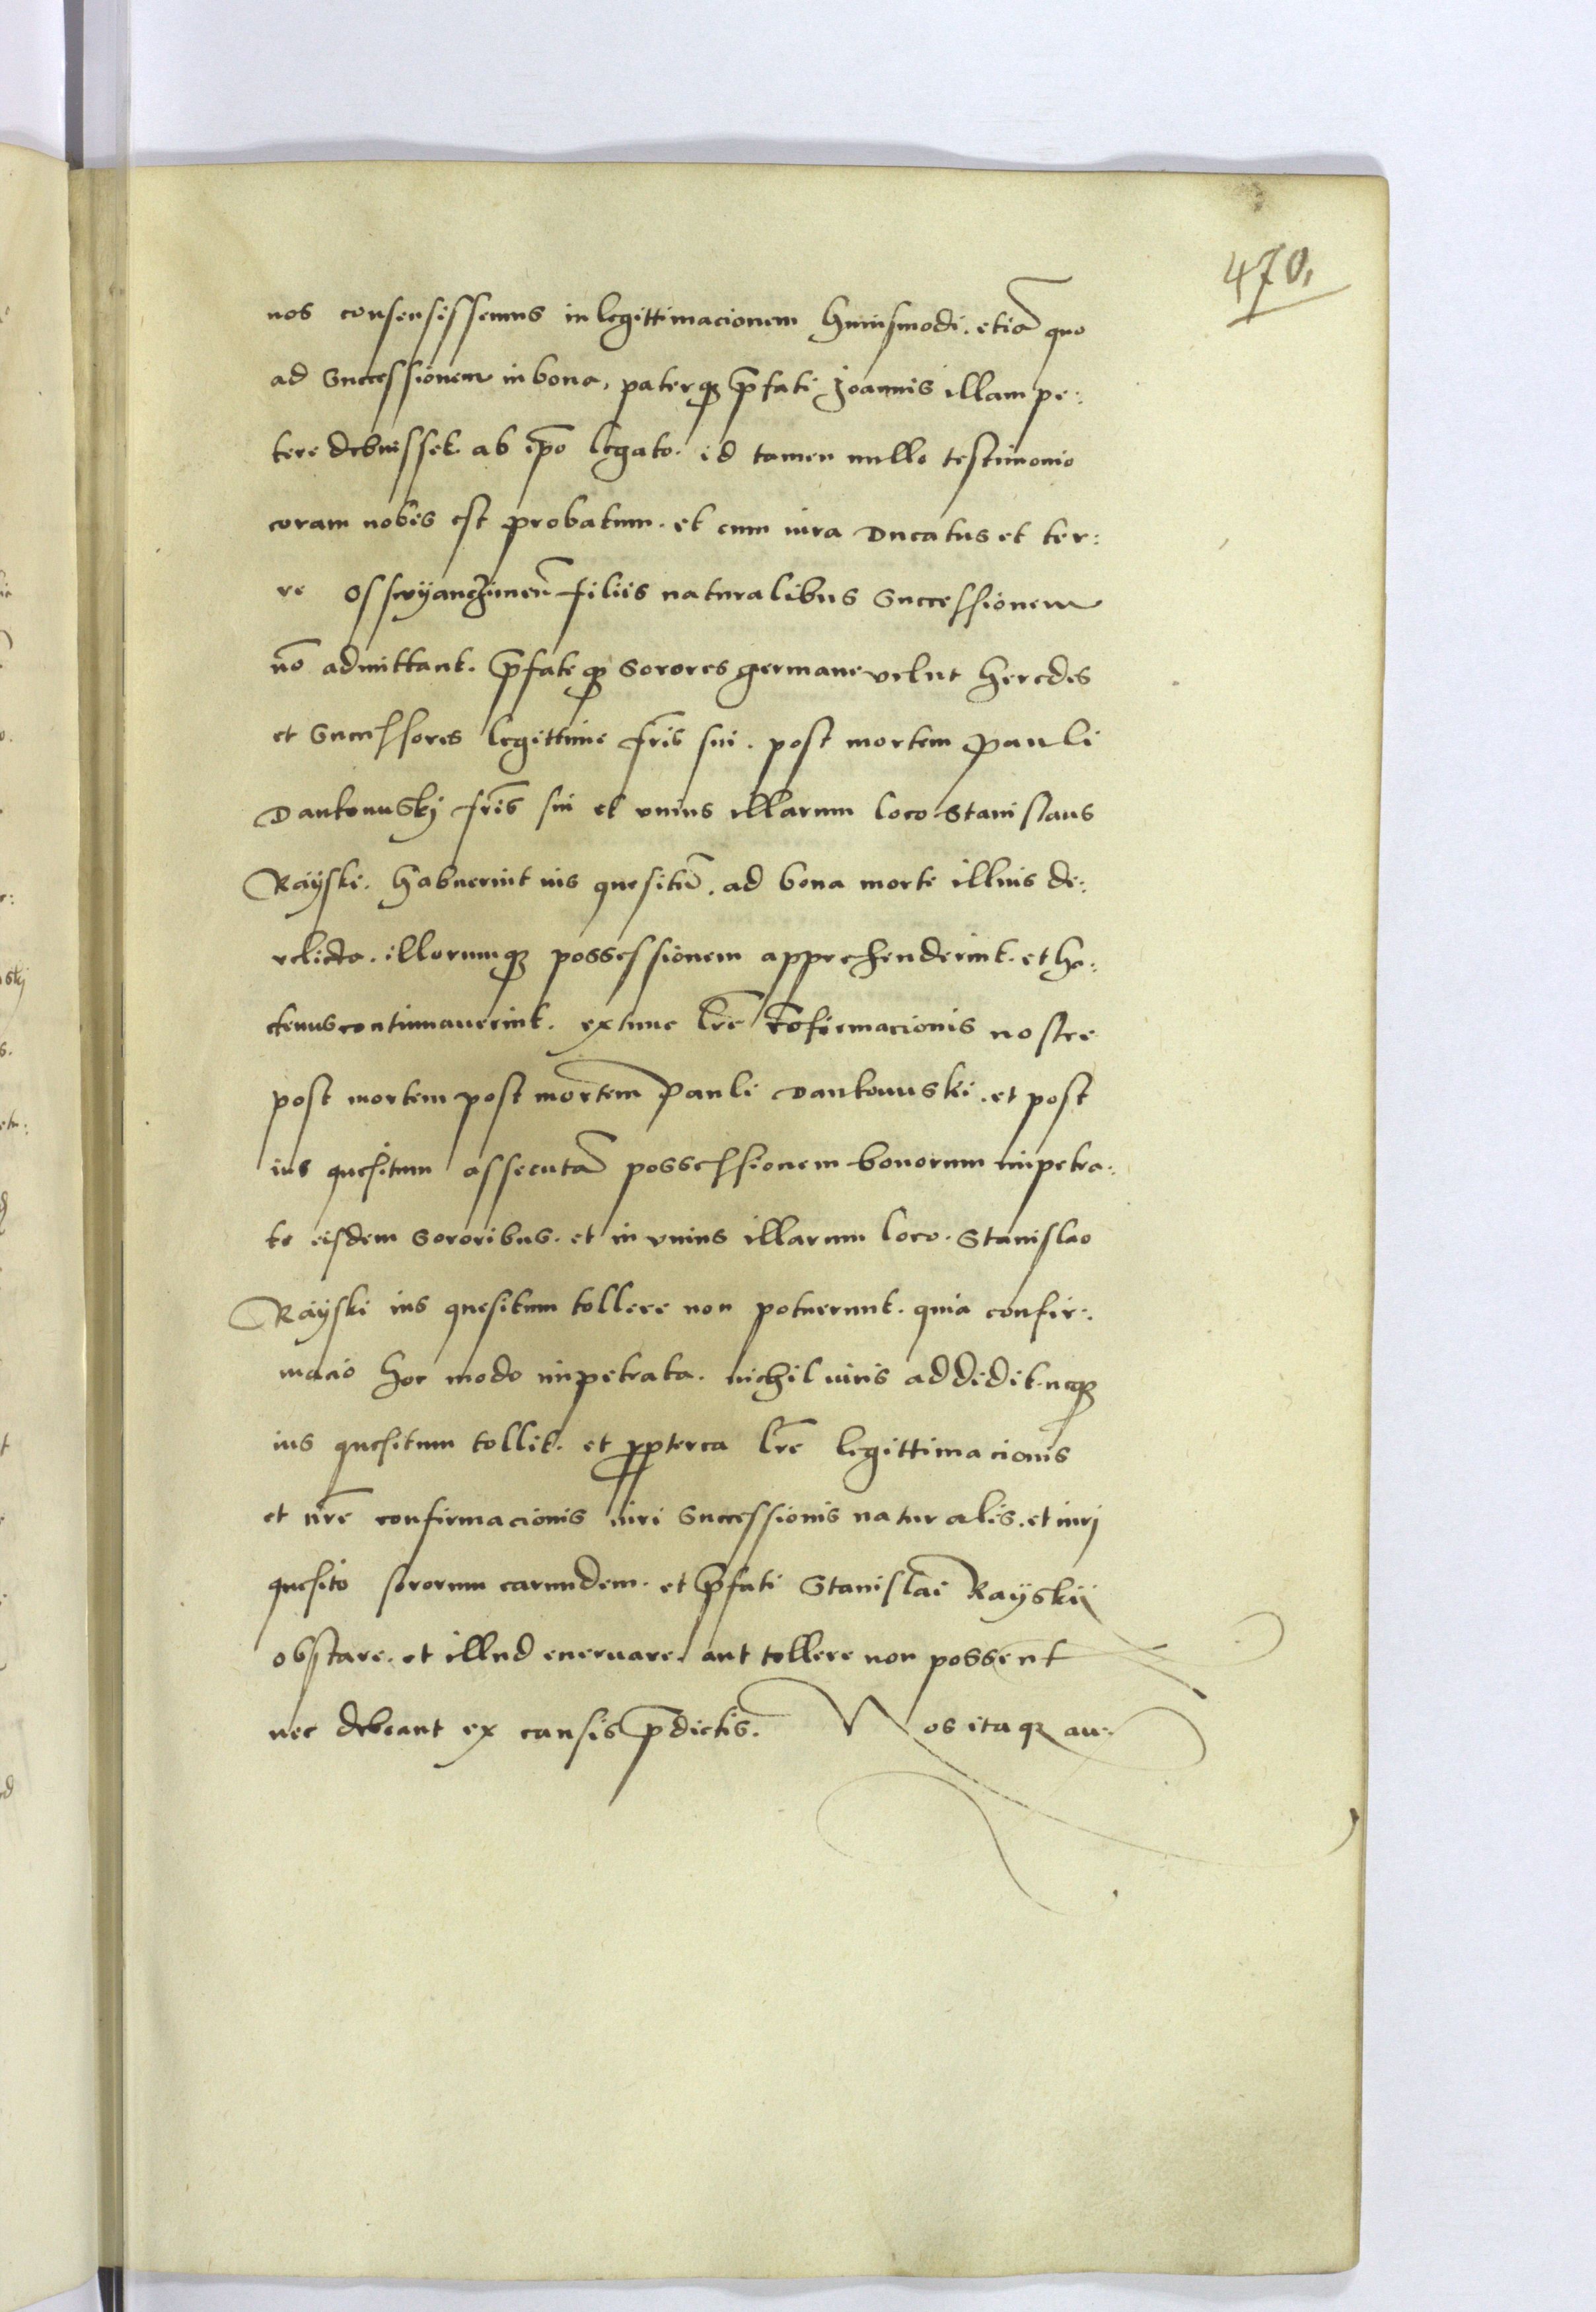 470.
nos consensissemus in legittimacionem huiusmodi. etiã quo
ad Successionem in bona, paterq̃ p̃fati Joannis illam pe:
tere debuisset. ab ip̃o legato. id tamen nullo testimonio
coram nobis est probatum. et cum iura Ducatus et ter:
re Osswyanczimeñ filiis naturalibus Successionem
nõ admittant. p̃fateq̃ Sorores germane velut heredes
et Successores legittime fr̃is sui. post mortem Pauli
Dankowskj fr̃is sui et vnius illarum loco Stanislaus
Rayski. habuerint ius quesitũ. ad bona morte illius de:
relicta. illorumq̃ possessionem apprehenderint. et ha:
ctenus continuauerint. extunc lr̃e cõfirmacionis nostre
post mortem post mortem Pauli Dankowski. et post
ius quesitum assecutã possessionem bonorum impetra:
te eisdem Sororibus. et in vnius illarum loco. Stanislao
Rayski ius quesitum tollere non potuerunt. quia confir:
macio hoc modo impetrata. nichil iuris addidit. neq̃
ius quesitum tollit. et propterea lr̃e legittimacionis
et nr̃e confirmacionis iuri Successionis naturalis. et iurj
quesito sororum earundem. et p̃fati Stanislai Rayskij
obstare. et illud eneruare. aut tollere non possent
nec debeant ex causis p̃dictis. Nos itaq̃ au: